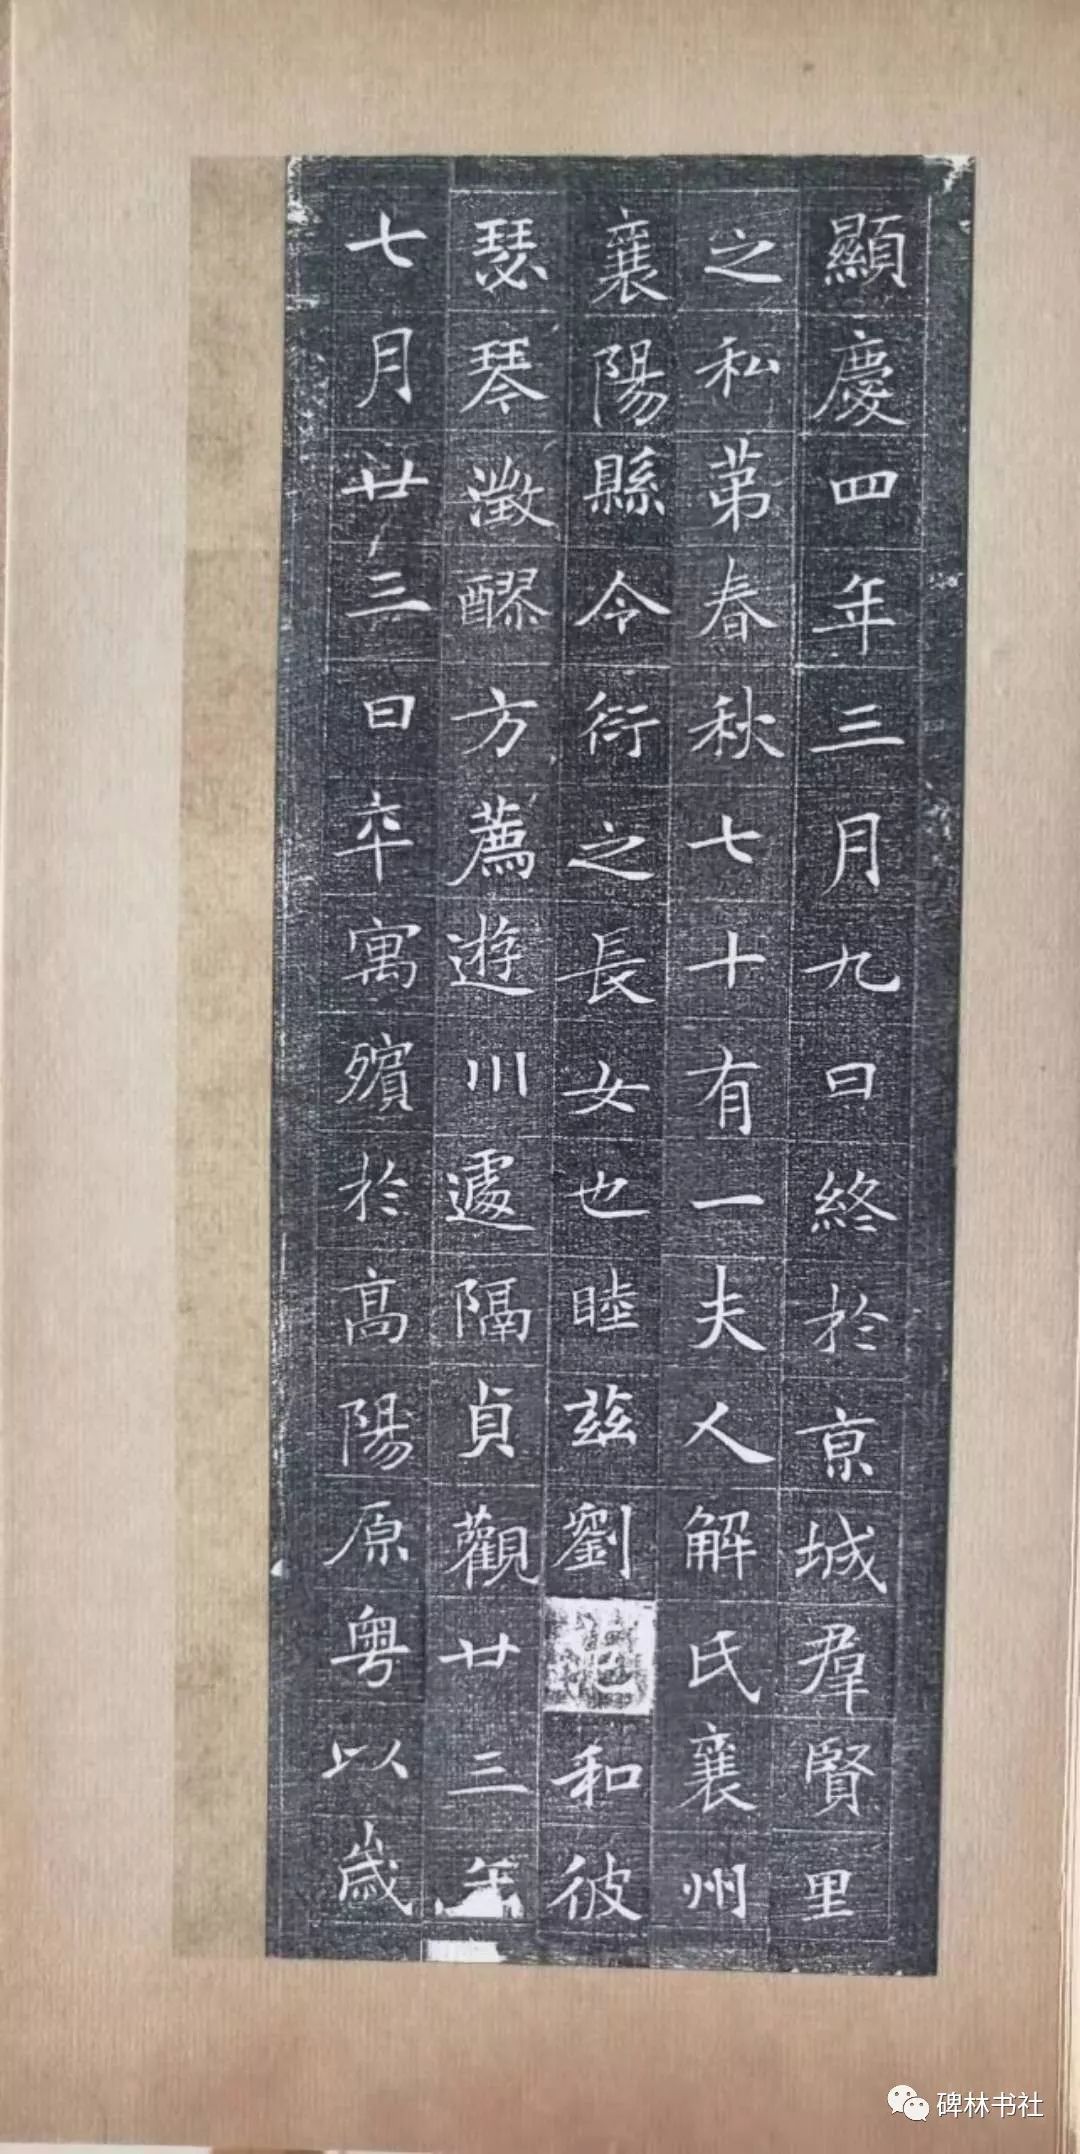 顯慶四年三月九日終於京城羣賢里
之私第春秋七十有一夫人解氏襄州
襄陽縣令衍之長女也睦茲劉和彼
瑟琴澂醪方薦遊川遽隔貞觀廿三年
七月廿三日卒寓殯於高陽原粵以歲
碑林书社